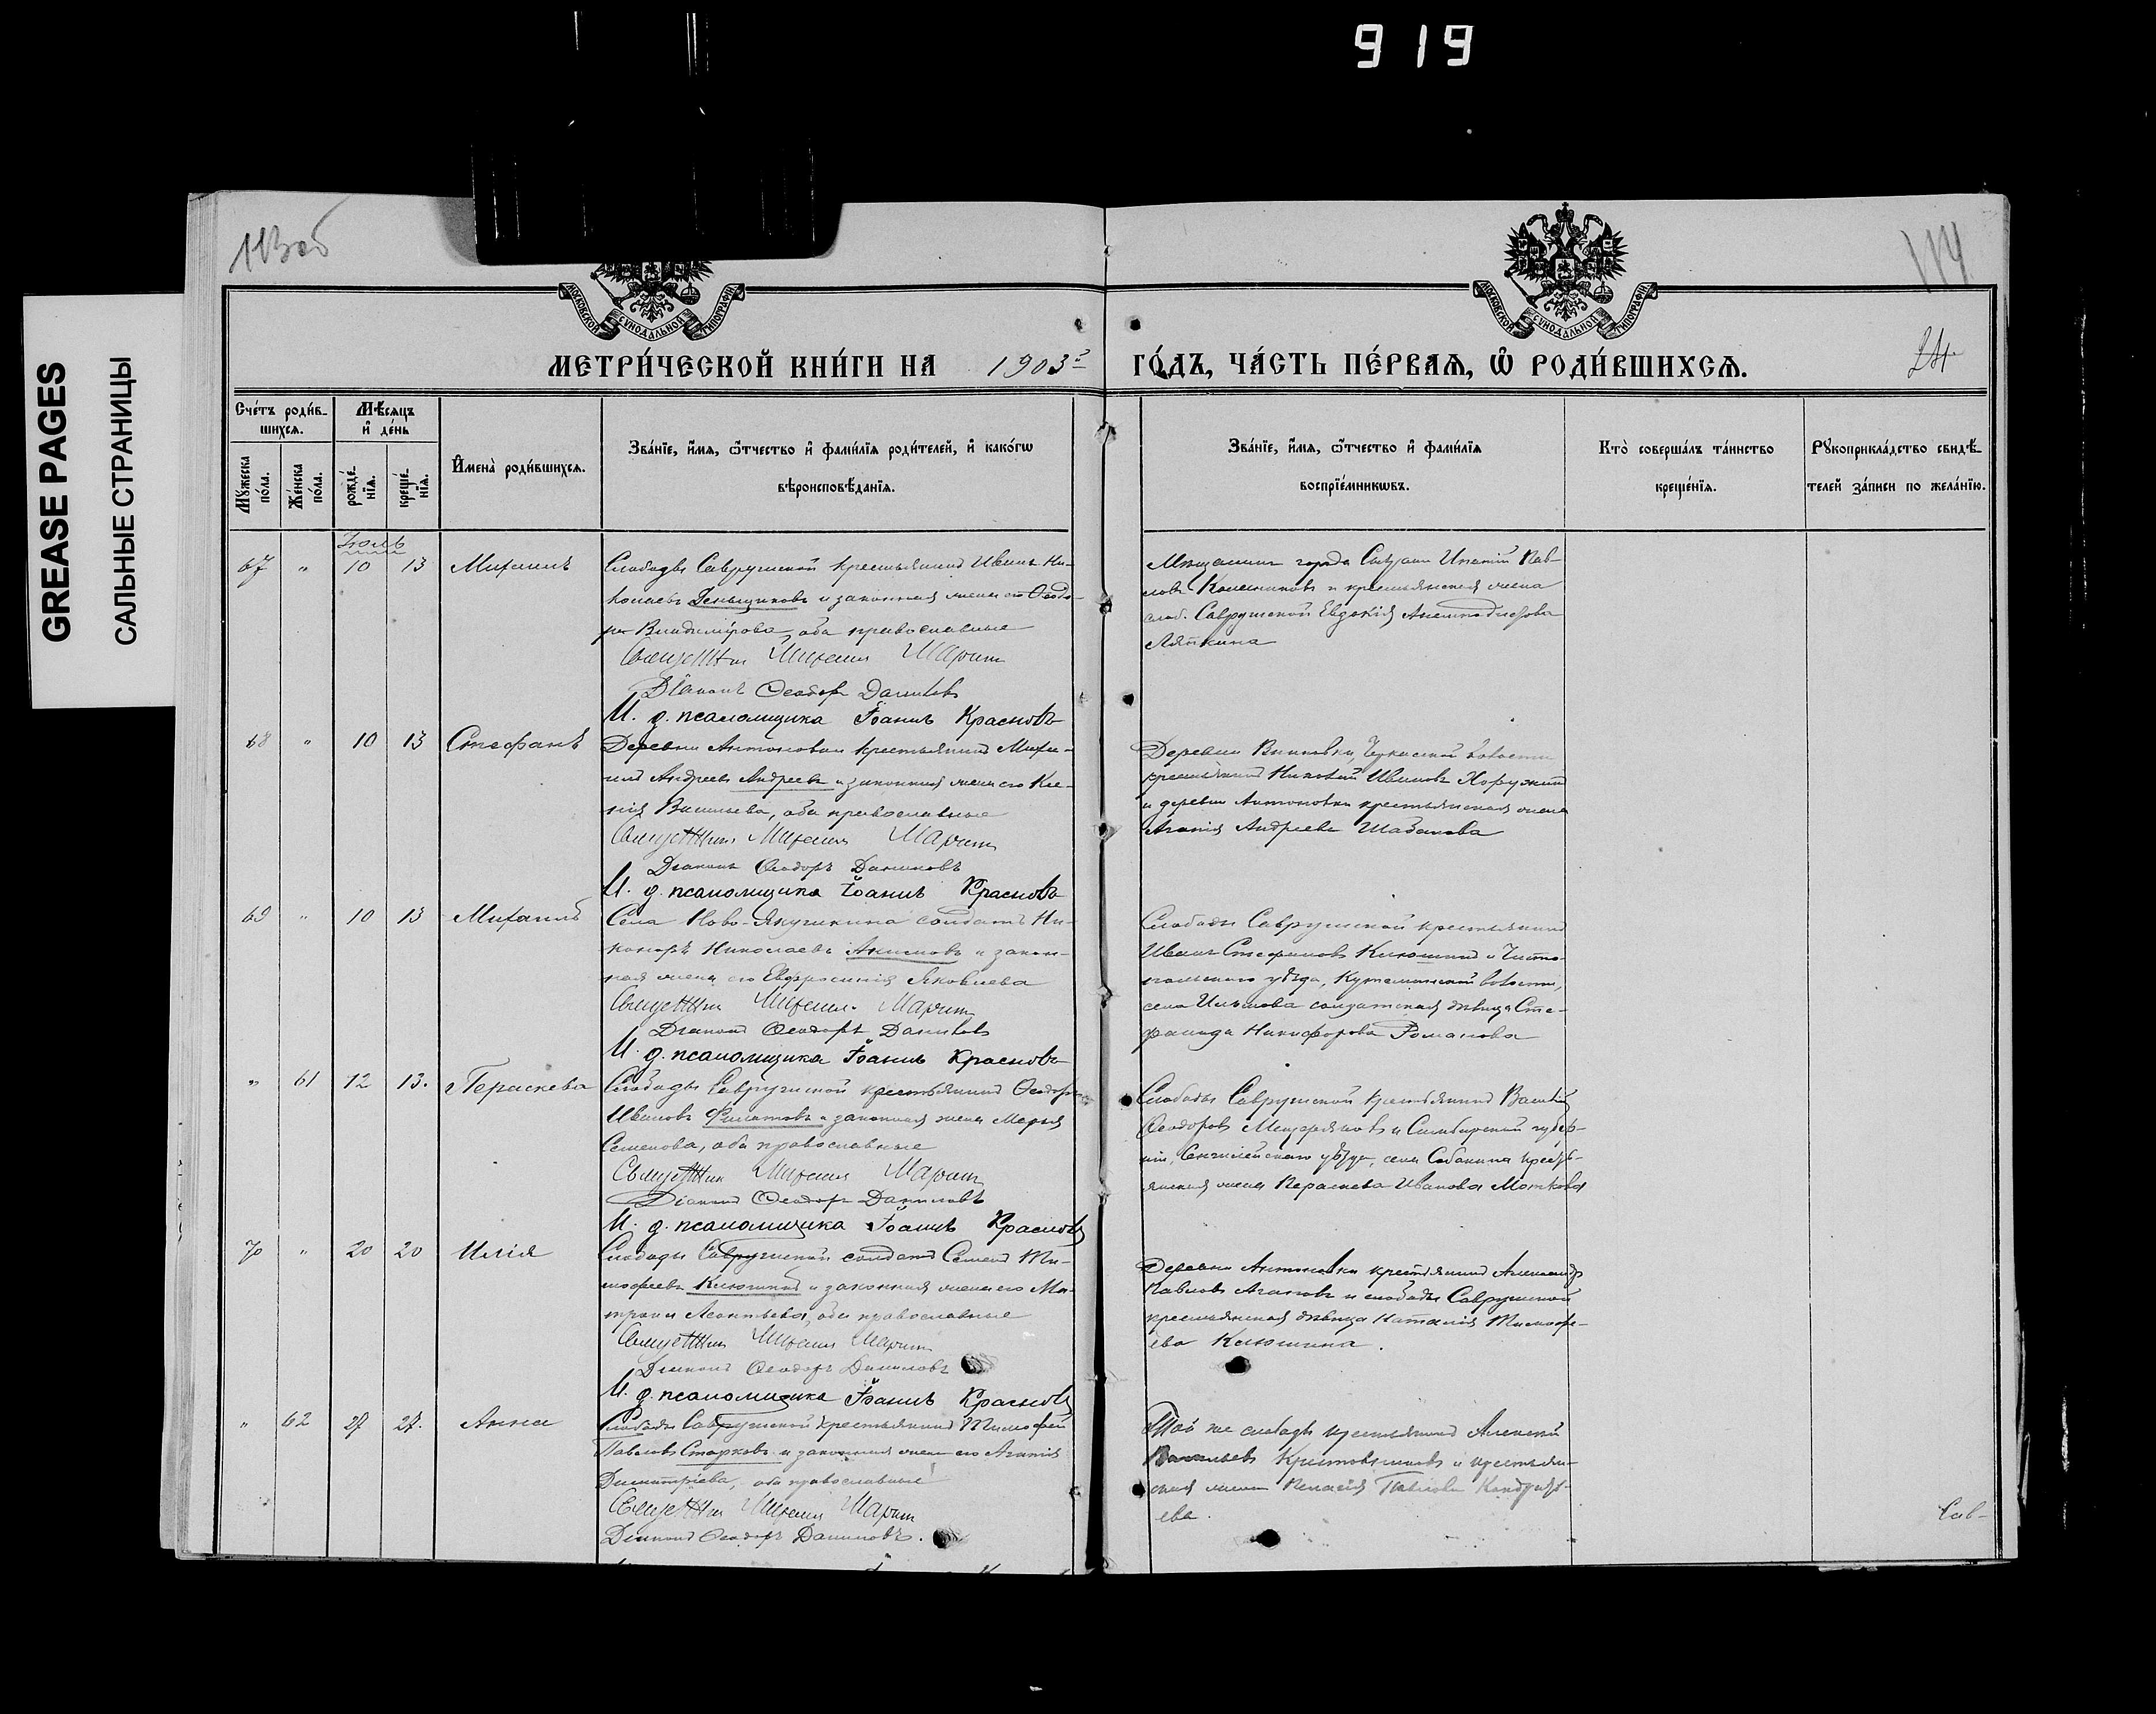 919
GREASE PAGES
САЛЬНЫЕ СТРАНИЦЫ
113об
114
МОСКОВСКОЙ СѴНОДАЛЬНОЙ ТИПОГРАФІИ
МОСКОВСКОЙ СѴНОДАЛЬНОЙ ТИПОГРАФІИ
МЕТРИ́ЧЕСКОЙ КНИ́ГИ НА 1903 ГО́ДЪ, ЧА́СТЬ ПЕ́РВАѦ, Ѽ РОДИ́ВШИХСѦ.
24
Сче́тъ роди́в-
шихсѧ.
Мѣ́сѧцъ
и҆ де́нь
Му́жеска по́ла.
Же́нска по́ла.
рожде́нїѧ.
креще́нїѧ.
И҆мена̀ роди́вшихсѧ.
Зва́нїе, и҆́мѧ, ѻ҆́тчество и҆ фами́лїѧ роди́телей, и҆ како́гѡ
вѣроисповѣ́данїѧ.
Зва́нїе, и҆́мѧ, ѻ҆́тчество и҆ фами́лїѧ
воспрїе́мникѡвъ.
Кто̀ соверша́лъ та́инство
креще́нїѧ.
Рꙋкоприкла́дство свидѣ́-
телей за́писи по жела́нїю.
Іюль
67 " 10 13 Михаилъ
Слободы Саврушской крестьянинъ Иванъ Ни-
колаевъ Деньщиковъ и законная жена его Ѳеодо-
ра Владимірова, оба православные
Священникъ Михаилъ
Діаконъ Ѳеодоръ Даниловъ
И. д. псаломщика Іоаннъ Красновъ
Мѣщанинъ города Сызрани Игнатій Пав-
ловъ и крестьянская жена
слоб. Саврушской Евдокія
Ляпкина
68 " 10 13 Стефанъ
Деревни Антоновки крестьянинъ Миха-
илъ Андреевъ Андреевъ и законная жена его Ксе-
нія Васильева, оба православные
Священникъ Михаилъ
Діаконъ Ѳеодоръ Даниловъ
И. д. псаломщика Іоаннъ Красновъ
Деревни волости
крестьянинъ Николай Ивановъ
и деревни Антоновки крестьянская жена
Агапія Андреева Шабанова
69 " 10 13 Михаилъ
Села Ново-Якушкина солдатъ Ни-
каноръ Николаевъ Акимовъ и закон-
ная жена его Евфросинія Яковлева
Священникъ Михаилъ
Діаконъ Ѳеодоръ Даниловъ
И. д. псаломщика Іоаннъ Красновъ
Слободы Саврушской крестьянинъ
Иванъ Стефановъ Клюшинъ и Чисто-
польскаго уѣзда, волости,
села солдатская дѣвица Сте-
фанида Никифорова Романова
" 61 12 13. Параскева
Слободы Саврушской крестьянинъ Ѳеодоръ
Ивановъ Филатовъ и законная жена Марья
Семенова, оба православные
Священникъ Михаилъ
Діаконъ Ѳеодоръ Даниловъ
И. д. псаломщика Іоаннъ Красновъ
Слободы Саврушской крестьянинъ Василій
Ѳеодоровъ Мещеряковъ и Симбирской губер-
ніи, Сенгилейскаго уѣзда, села Собакина кресть-
янская жена Параскева Иванова
70 " 20 20 Илія
Слободы Саврушской солдатъ Семенъ Ти-
мофеевъ Клюшинъ и законная жена его Ма-
трона Леонтьева, оба православные
Священникъ Михаилъ
Діаконъ Ѳеодоръ Даниловъ
И. д. псаломщика Іоаннъ Красновъ
Деревни Антоновки крестьянинъ Александръ
Павловъ Агаповъ и слободы Саврушской
крестьянская дѣвица Наталія Тимофе-
ева Клюшина.
" 62 27 27. Анна
Слободы Саврушской крестьянинъ Тимофей
Павловъ Старковъ и законная жена его Агапія
Димитріева, оба православные
Священникъ Михаилъ
Діаконъ Ѳеодоръ Даниловъ.
Той же слободы крестьянинъ Алексей
Васильевъ и крестьян-
ская жена Пелагія Павлова Кондрать-
ева.
Сав-